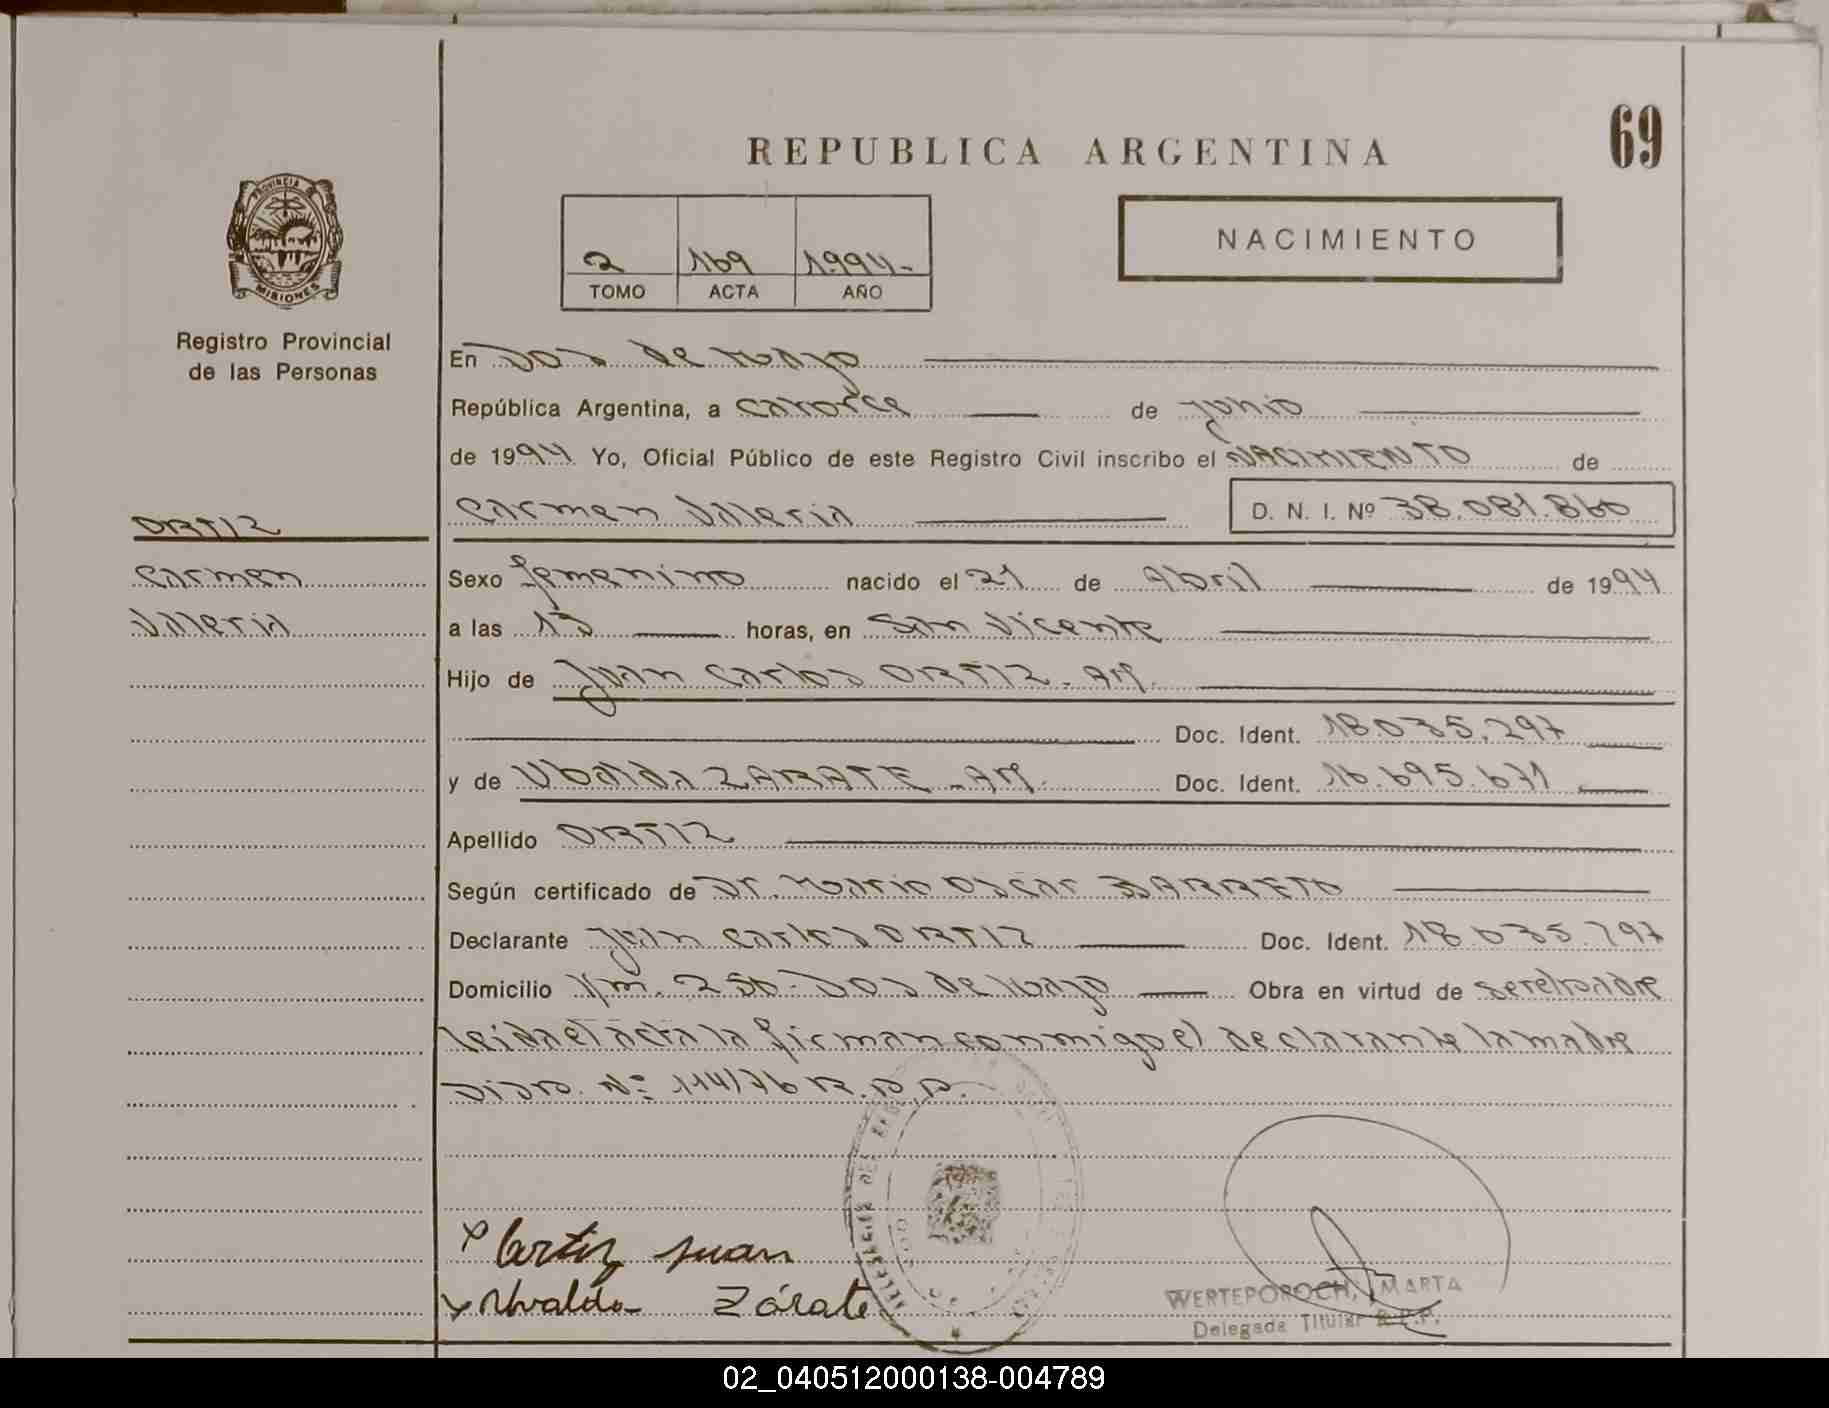 69
REPUBLICA ARGENTINA
PROVINCIA D
MISIONES
Registro Provincial
de las Personas
2 169 1994-
TOMO ACTA AÑO
NACIMIENTO
En Dos de Mayo
República Argentina, a catorce de junio
de 1994 Yo, Oficial Público de este Registro Civil inscribo el NACIMIENTO de
Carmen Valeria D. N. I. Nº 38.081.860
ORTIZ
Carmen
Valeria
Sexo femenino nacido el 21 de Abril de 1994
a las 13 horas, en San Vicente
Hijo de Juan Carlos ORTIZ - AM.
Doc. Ident. 18.035.297
y de Ubalda ZARATE - AM. Doc. Ident. 16.695.671
Apellido ORTIZ
Según certificado de Dr. Mario Oscar BARRETO
Declarante Juan Carlos ORTIZ Doc. Ident. 18.035.297
Domicilio Km. 256 - Dos de Mayo Obra en virtud de ser el padre
leida el acta la firman conmigo el declarante la madre
Dispo. Nº 114/76 R.P.P.
Ortiz Juan
Uvalda Zárate
WERTEPOROCH, MARTA
Delegada Titular R.P.P.
02_040512000138-004789